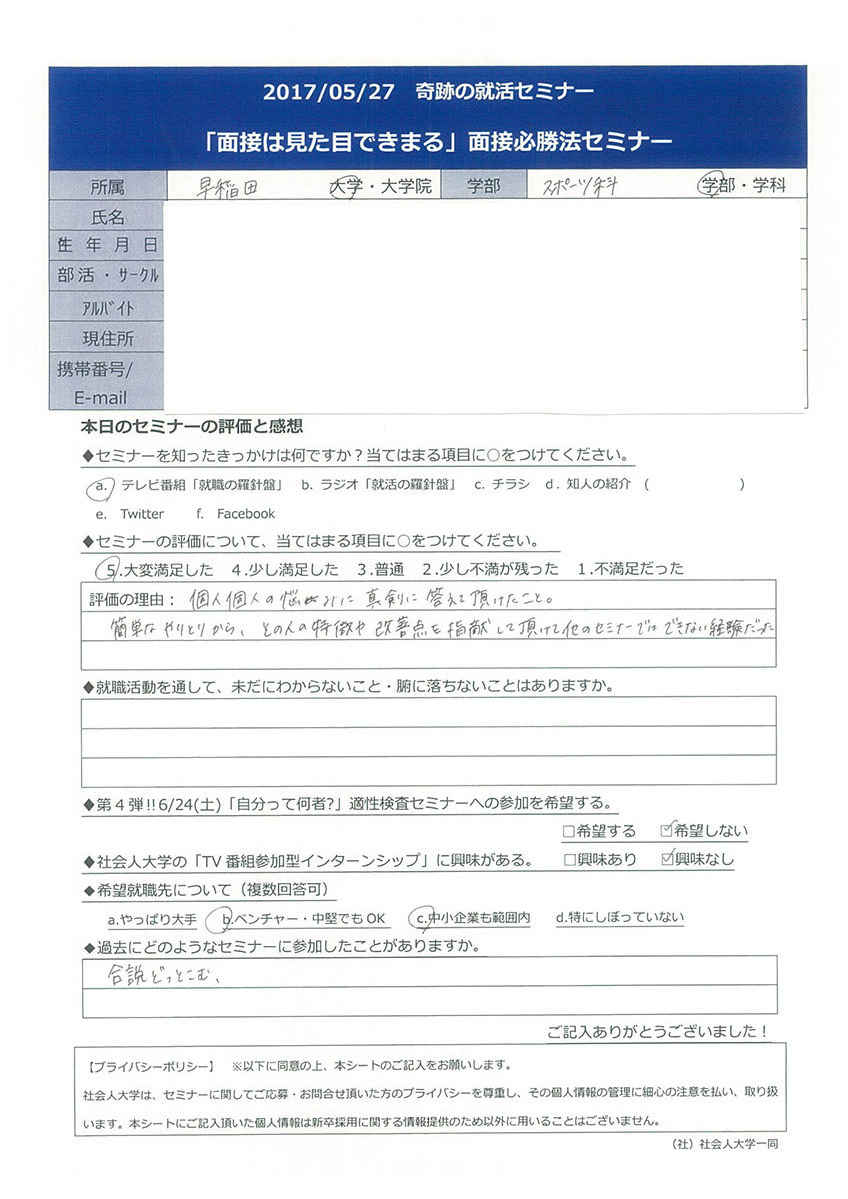 2017/05/27 奇跡の就活セミナー
「面接は見た目できまる」面接必勝法セミナー
所属 早稲田 大学・大学院 学部 スポーツ科 学部・学科
氏名
生年月日
部活・サークル
アルバイト
現住所
携帯番号/
E-mail
本日のセミナーの評価と感想
◆セミナーを知ったきっかけは何ですか？当てはまる項目に○をつけてください。
a. テレビ番組「就職の羅針盤」 b. ラジオ「就活の羅針盤」 c. チラシ d. 知人の紹介 ( )
e. Twitter f. Facebook
◆セミナーの評価について、当てはまる項目に○をつけてください。
5.大変満足した 4.少し満足した 3.普通 2.少し不満が残った 1.不満足だった
評価の理由： 個人個人の悩みに真剣に答えて頂けたこと。
簡単なやりとりから、その人の特徴や改善点を指献して頂けて他のセミナーではできない経験だった
◆就職活動を通して、未だにわからないこと・腑に落ちないことはありますか。
◆第4弾!!6/24(土)「自分って何者?」適性検査セミナーへの参加を希望する。
□希望する ☑希望しない
◆社会人大学の「TV番組参加型インターンシップ」に興味がある。 □興味あり ☑興味なし
◆希望就職先について（複数回答可）
a.やっぱり大手 b.ベンチャー・中堅でもOK c.中小企業も範囲内 d.特にしぼっていない
◆過去にどのようなセミナーに参加したことがありますか。
合説どっとこむ、
ご記入ありがとうございました！
【プライバシーポリシー】 ※以下に同意の上、本シートのご記入をお願いします。
社会人大学は、セミナーに関してご応募・お問合せ頂いた方のプライバシーを尊重し、その個人情報の管理に細心の注意を払い、取り扱
います。本シートにご記入頂いた個人情報は新卒採用に関する情報提供のため以外に用いることはございません。
（社）社会人大学一同